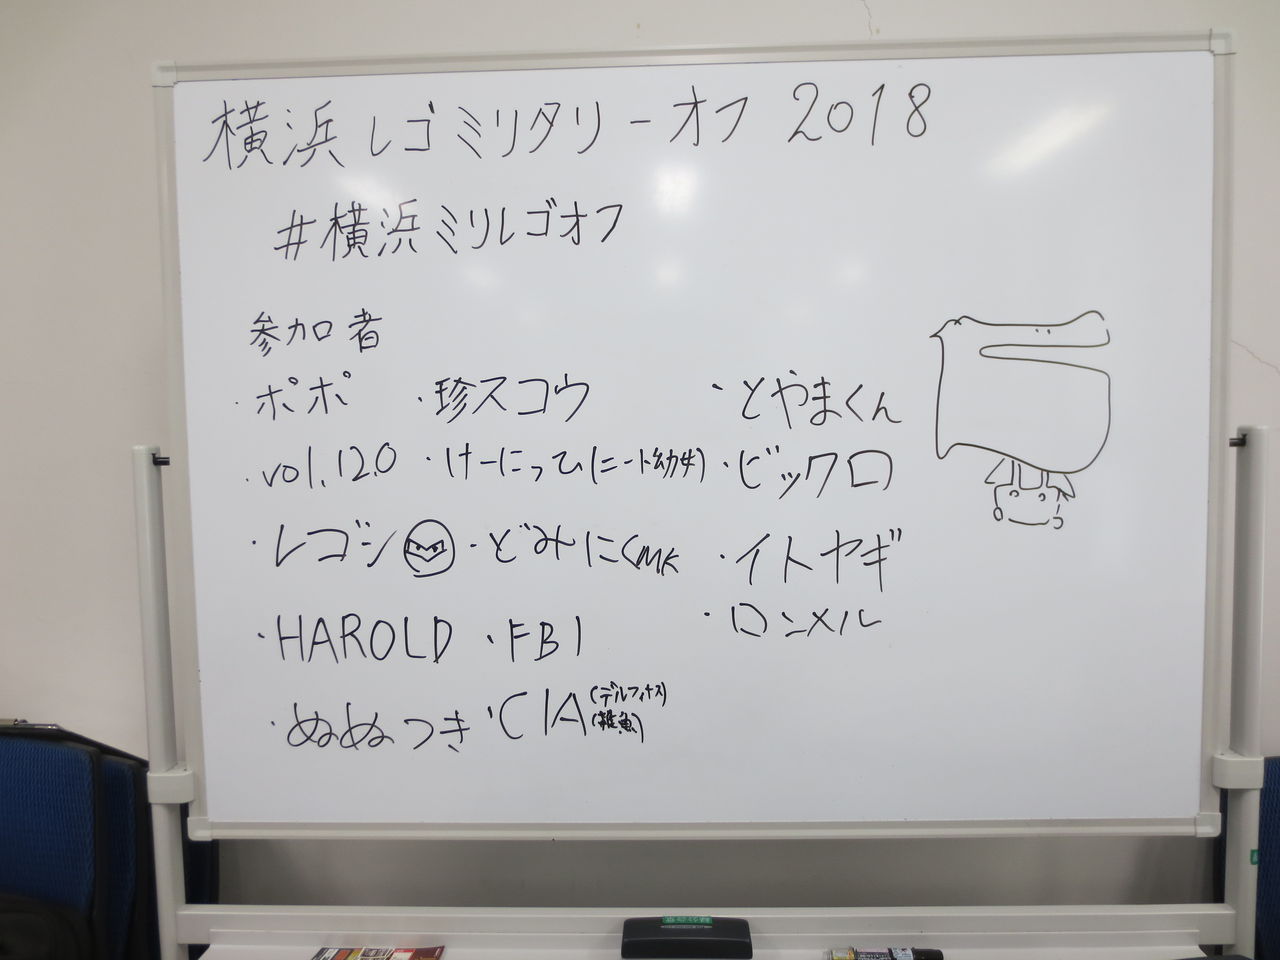 横浜レゴミリタリーオフ 2018
#横浜ミリレゴオフ
参加者
・ポポ ・珍スコウ ・とやまくん
・vol.120 ・けーにっひ(ニート幼女) ・ビックロ
・レゴシ ・どみにくMK ・イトヤギ
・HAROLD ・FBI ・ロンメル
・ぬぬつき ・CIA (デルフィナス)
(雑魚)